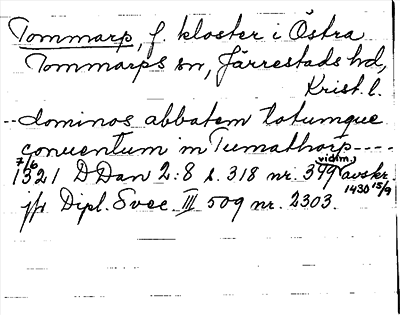 Tommarp, f. kloster i Östra
Tommarps sn, Järrestads hd,
Krist. l.
--dominos abbatem totumque
conuentum in Tumathorp----
7/6 1321 DDan 2:8 s. 318 nr. 399 (vidim.) avskr. 1430 15/9
jfr Dipl. Svec. III 509 nr. 2303.